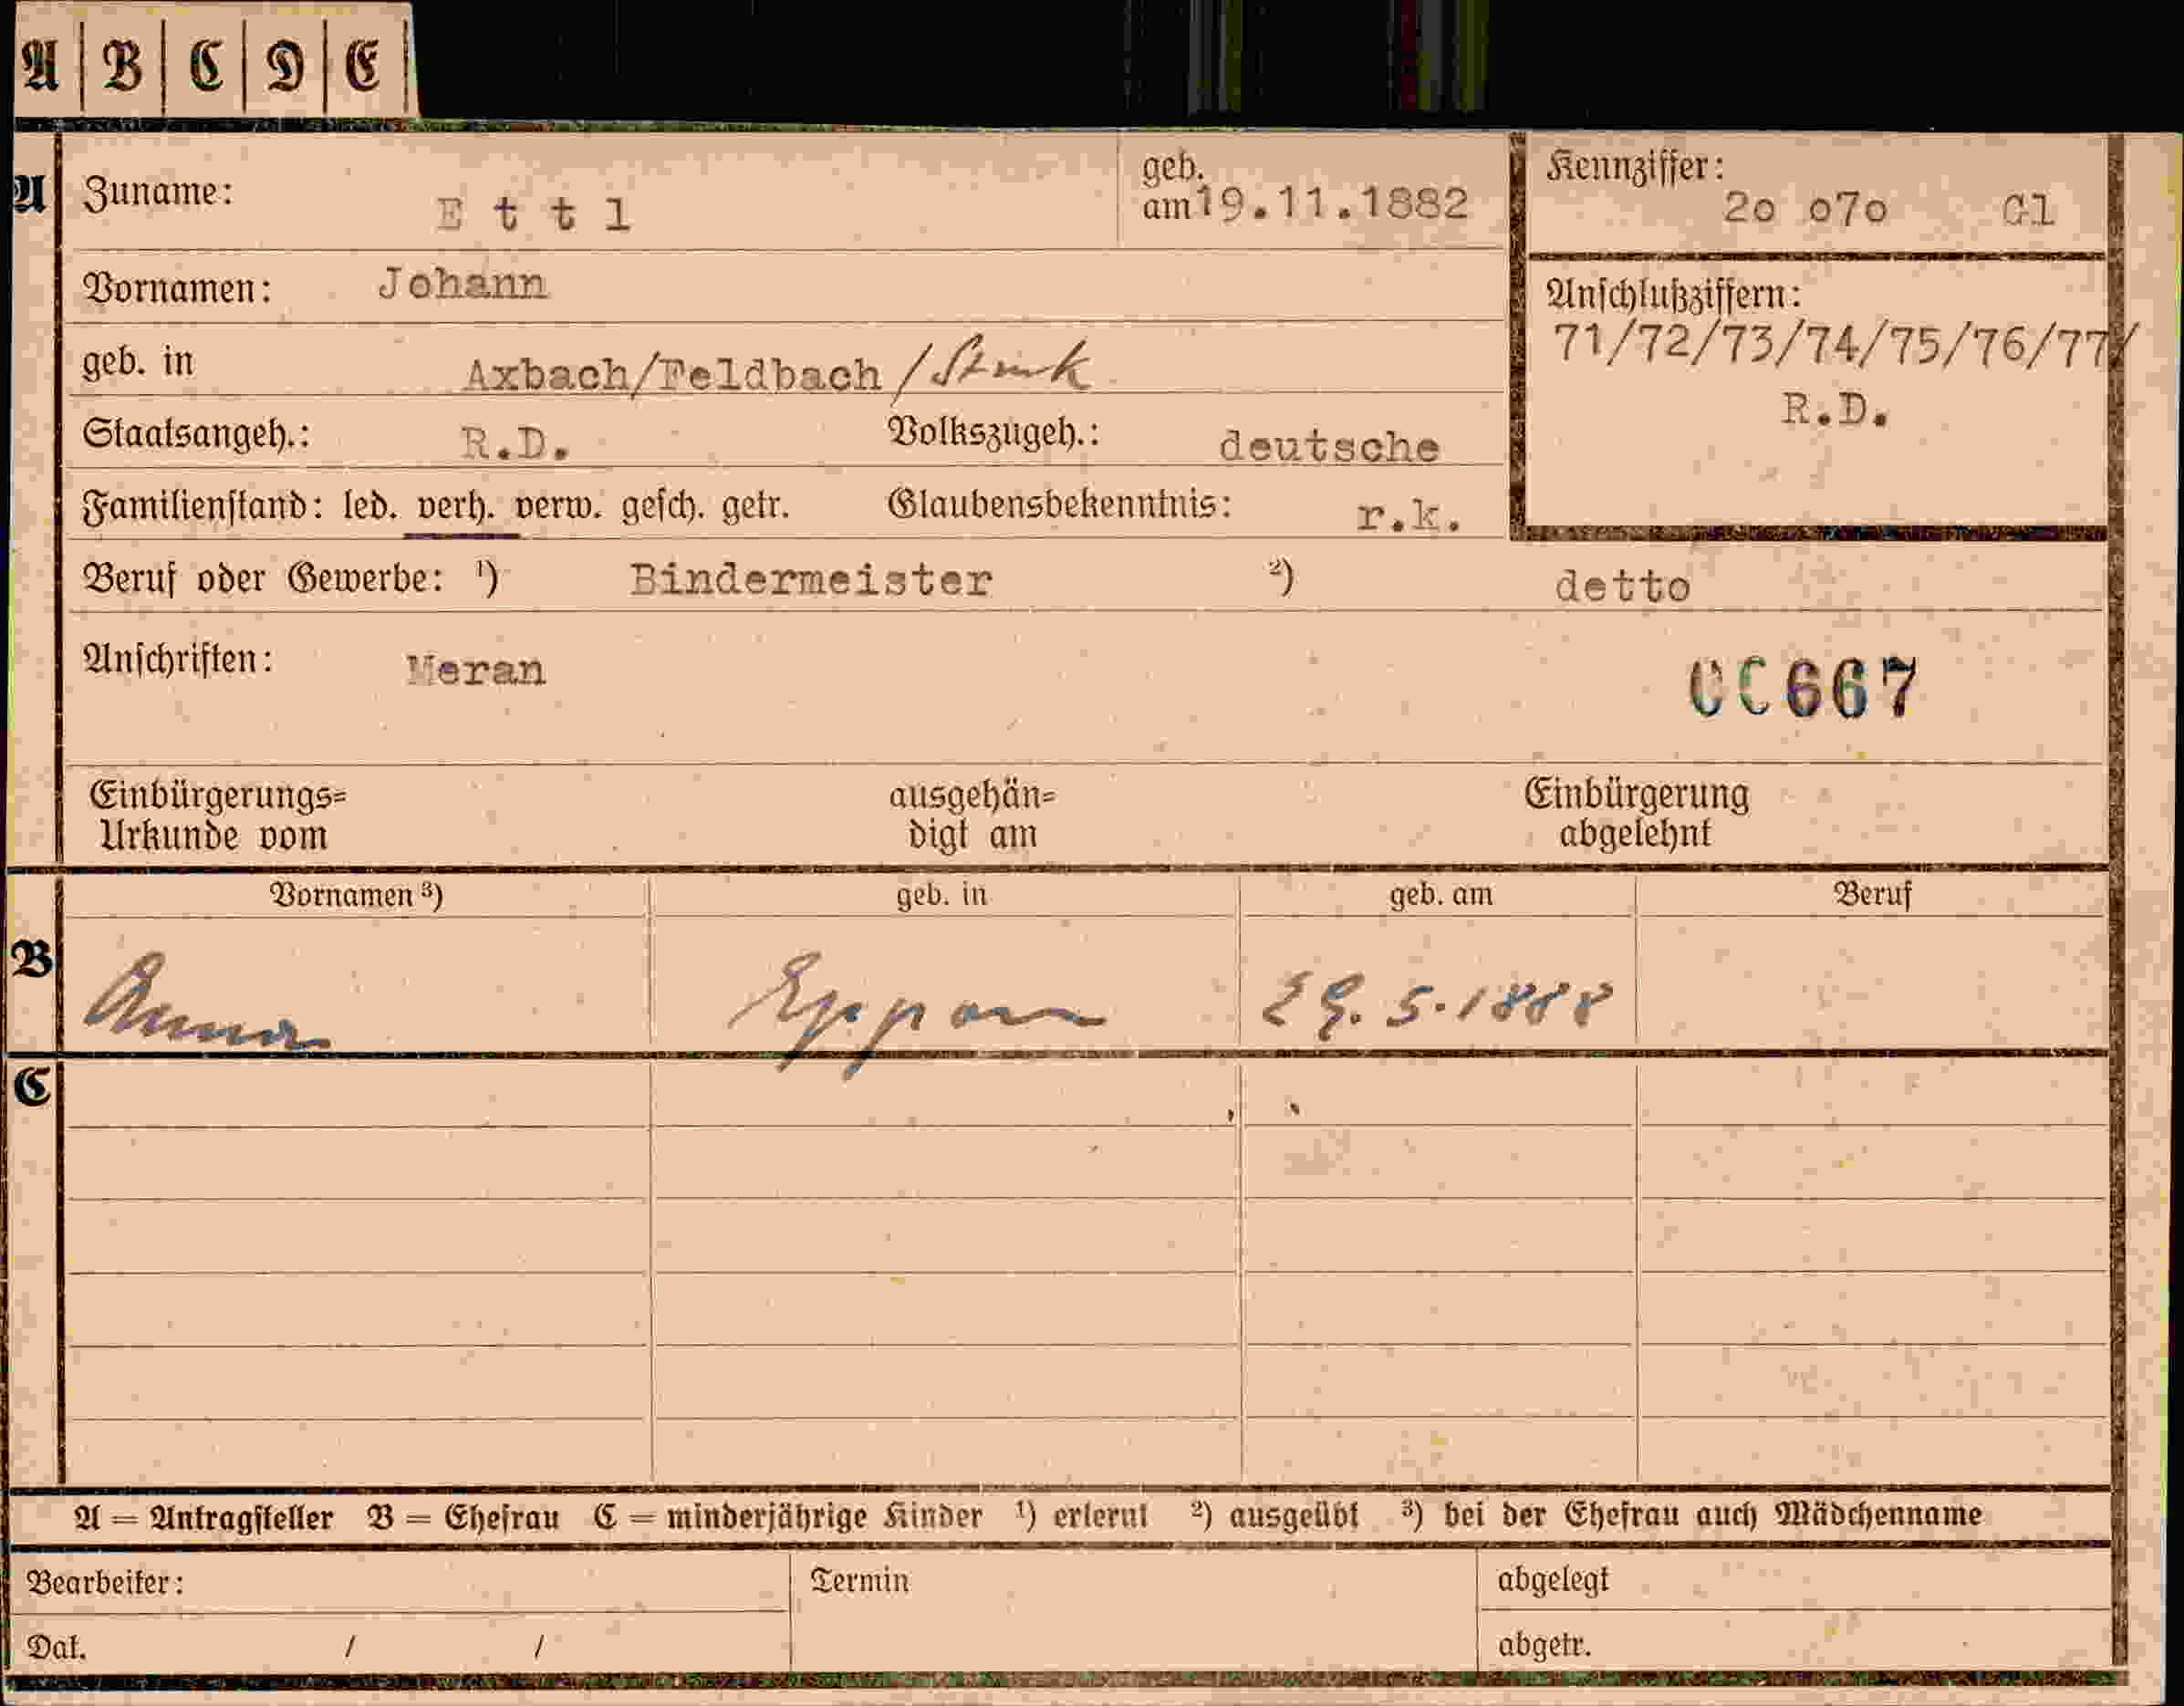 A B C D E
A Zuname: Ettl geb. am 19.11.1882 Kennziffer: 2o o7o Gl
Vornamen: Johann
Anschlußziffern:
71/72/73/74/75/76/77/
R.D.
geb. in Axbach/Feldbach /
Staatsangeh.: R.D. Volkszugeh.: deutsche
Familienstand: led. verh. verw. gesch. getr. Glaubensbekenntnis: r.k.
Beruf oder Gewerbe: ¹) Bindermeister ²) detto
Anschriften: Meran
CC667
Einbürgerungs= ausgehän= Einbürgerung
Urkunde vom digt am abgelehnt
Vornamen ³) geb. in geb. am Beruf
B Anna Eppan 29.5.1888
C
A = Antragsteller B = Ehefrau C = minderjährige Kinder ¹) erlernt ²) ausgeübt ³) bei der Ehefrau auch Mädchenname
Bearbeiter: Termin abgelegt
Dat. / / abgetr.